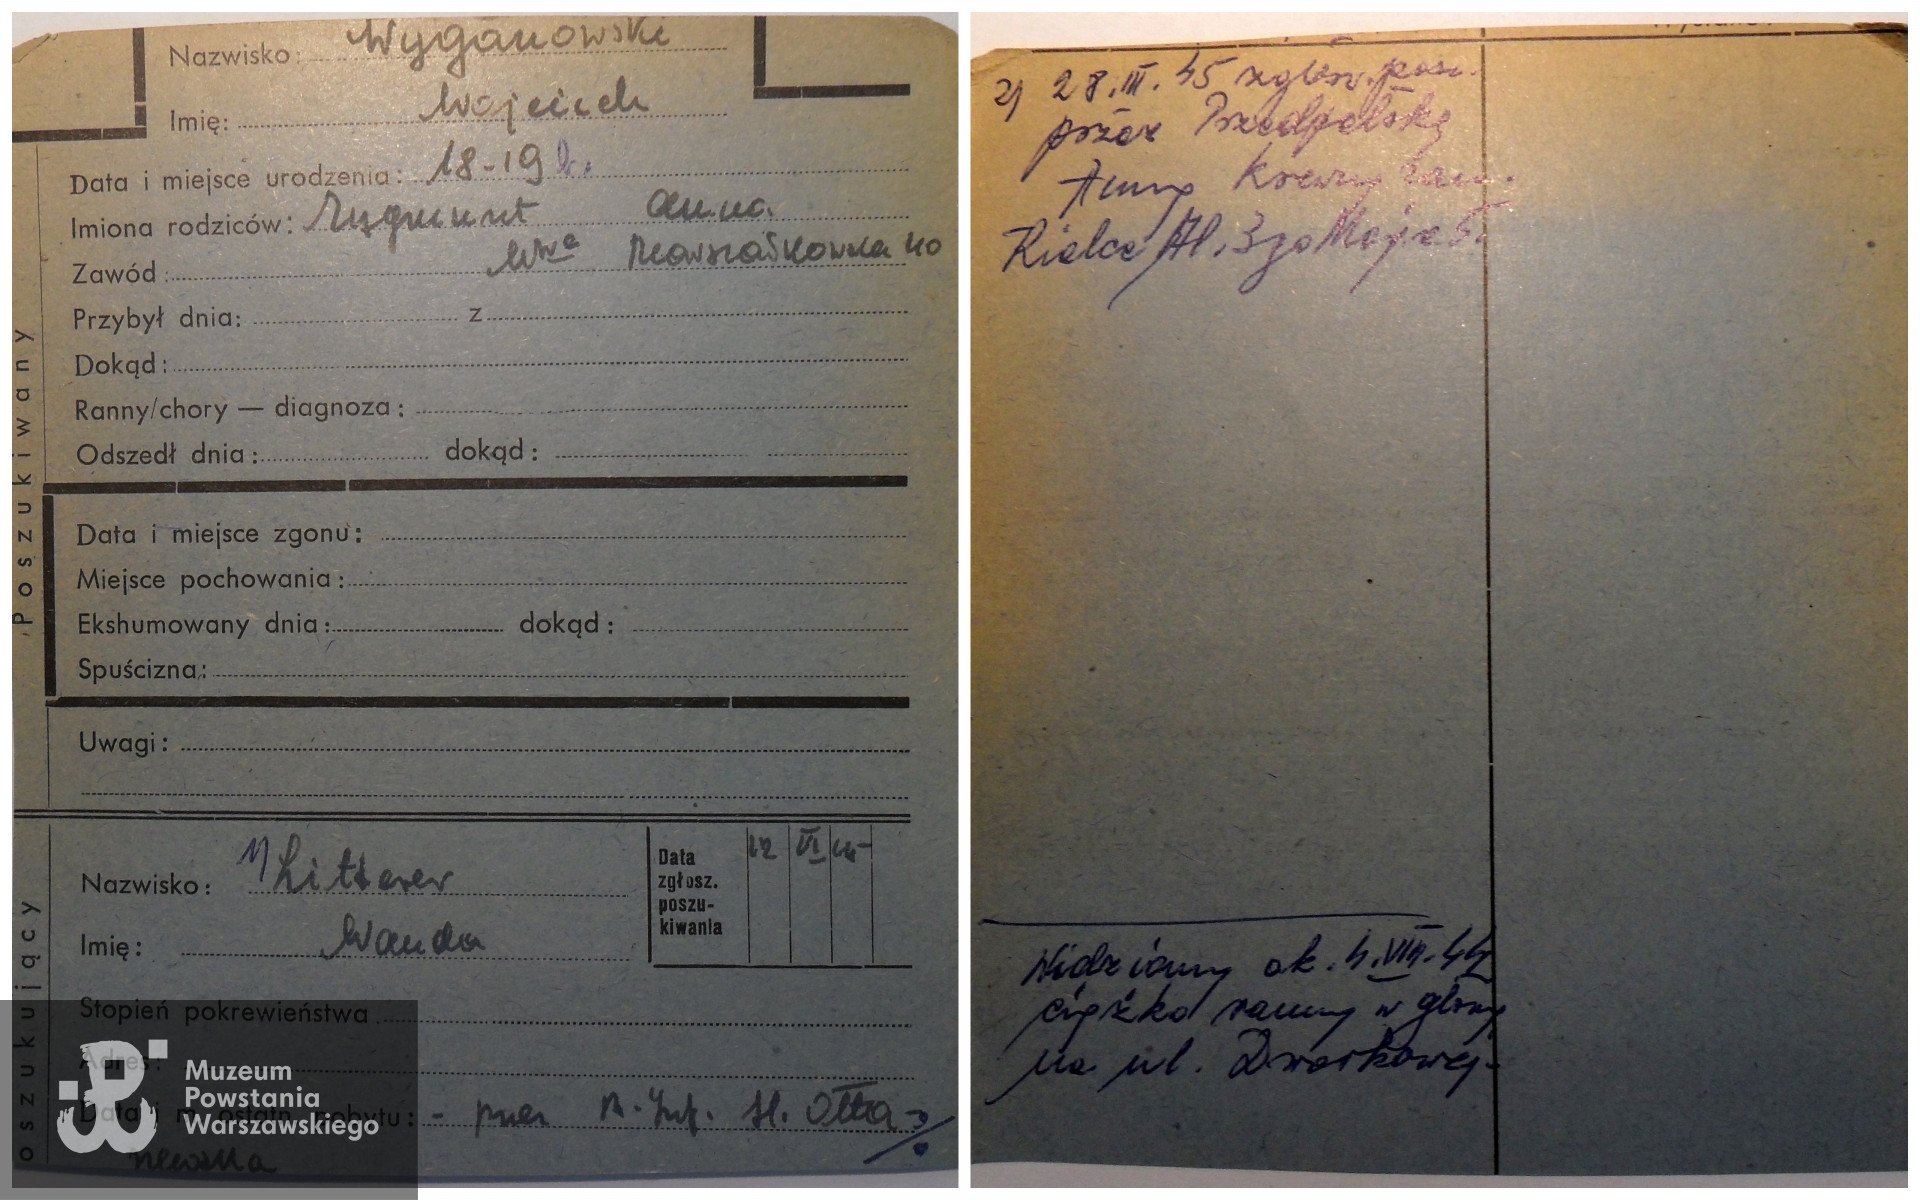 Nazwisko: Wyganowski
Imię: Wojciech
Data i miejsce urodzenia: 18-19 l.
Imiona rodziców: Zygmunt Anna
Zawód: Wwa Marszałkowska 40
Przybył dnia: z
Dokąd:
Ranny/chory — diagnoza:
Odszedł dnia: dokąd:
Poszukiwany
Data i miejsce zgonu:
Miejsce pochowania:
Ekshumowany dnia: dokąd:
Spuścizna:
Uwagi:
Nazwisko: 1) Litterer
Imię: Wanda
Data zgłosz. poszu-kiwania
12 VI
Poszukujący
Stopień pokrewieństwa
Adres:
Data i m. ostatn. pobytu: - przez B. Inf.
Muzeum
Powstania
Warszawskiego
2) 28.III.45 zgłosz. posz.
przez Przedpełską
Annę
Kielce Al. 3go Maja
Widziany ok. 4.VIII.44
ciężko ranny w głowę
na ul. Dworkowej.